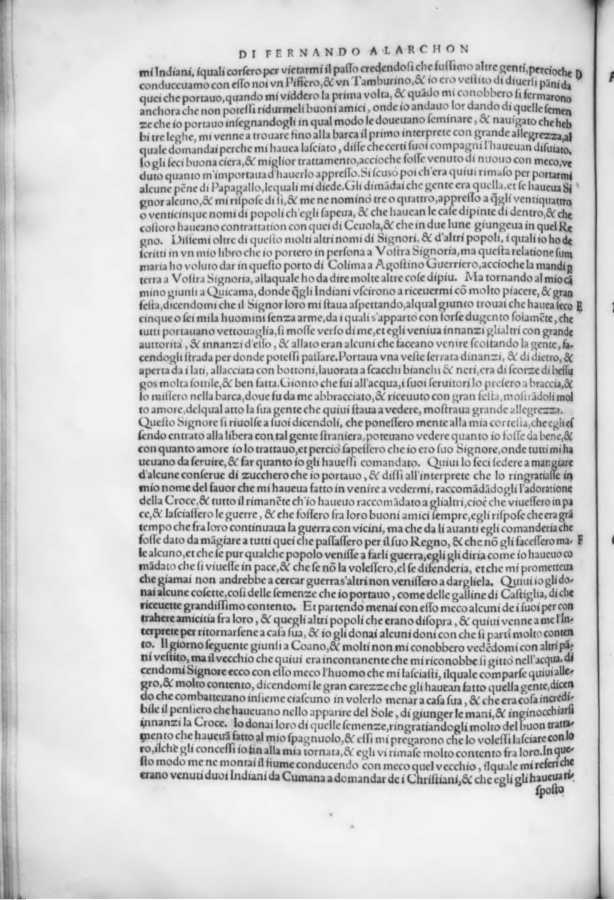 DI FERNANDO ALARCHON
mi Indiani, iquali corsero per vietarmi il passo credendosi che fussimo altre genti, percioche D
conduceuamo con esso noi vn Piffero, & vn Tamburino, & io ero vestito di diuersi pāni da
quei che portauo, quando mi viddero la prima volta, & quādo mi conobbero si fermarono
anchora che non potessi ridurmeli buoni amici, onde io andauo lor dando di quelle semen
ze che io portauo insegnandogli in qual modo le doueuano seminare, & nauigato che heb
bi tre leghe, mi venne a trouare fino alla barca il primo interprete con grande allegrezza, al
quale domandai perche mi hauea lasciato, disse che certi suoi compagni l'haueuan disuiato,
Io gli feci buona ciera, & miglior trattamento, accioche fosse venuto di nuouo con meco, ve
duto quanto m'importaua d'hauerlo appresso. Si scusò poi ch'era quiui rimaso per portarmi
alcune pēne di Papagallo, lequali mi diede. Gli dimādai che gente era quella, et se haueua Si
gnor alcuno, & mi rispose di sì, & me ne nominò tre o quattro, appresso a q̃gli ventiquattro
o venticinque nomi di popoli ch'egli sapeua, & che hauean le case dipinte di dentro, & che
costoro haueano contrattation con quei di Ceuola, & che in due lune giungeua in quel Re
gno. Dissemi oltre di questo molti altri nomi di Signori, & d'altri popoli, i quali io ho de
scritti in vn mio libro che io portero in persona a Vostra Signoria, ma questa relatione sum
maria ho voluto dar in questo porto di Colima a Agostino Guerriero, accioche la mandi p
terra a Vostra Signoria, allaquale ho da dire molte altre cose dipiu. Ma tornando al mio ca
mino giunti a Quicama, donde q̃gli Indiani vscirono a riceuermi cō molto piacere, & gran
festa, dicendomi che il Signor loro mi staua aspettando, alqual giunto trouai che hauea seco E
cinque o sei mila huomini senza arme, da i quali s'apparto con forse dugento solamēte, che
tutti portauano vettouaglia, si mosse verso di me, et egli veniua innanzi gli altri con grande
auttorità, & innanzi d'esso, & allato eran alcuni che faceano venire scostando la gente, fa-
cendogli strada per donde potessi passare. Portaua vna veste serrata dinanzi, & di dietro, &
aperta da i lati, allacciata con bottoni, lauorata a scacchi bianchi & neri, era di scorze di bessu
gos molto sottile, & ben fatta. Gionto che fui all'acqua, i suoi seruitori lo presero a braccia, &
lo missero nella barca, doue fu da me abbracciato, & riceuuto con gran festa, mostrādoli mol
to amore, delqual atto la sua gente che quiui staua a vedere, mostraua grande allegrezza.
Questo Signore si riuolse a suoi dicendoli, che ponessero mente alla mia cortesia, che egli es
sendo entrato alla libera con tal gente straniera, poteuano vedere quanto io fosse da bene, &
con quanto amore io lo trattauo, et perciò sapessero che io ero suo Signore, onde tutti mi ha
ueuano da seruire, & far quanto io gli hauessi comandato. Quiui lo feci sedere a mangiare
d'alcune conserue di zucchero che io portauo, & dissi all'interprete che lo ringratiasse in
mio nome del fauor che mi haueua fatto in venire a vedermi, raccomādādogli l'adoratione
della Croce, & tutto il rimanēte ch'io haueuo raccomādato a gli altri, cioè che viuessero in pa
ce, & lasciassero le guerre, & che fossero fra loro buoni amici sempre, egli rispose che era grā
tempo che fra loro continuaua la guerra con vicini, ma che da li auanti egli comanderia che
fosse dato da māgiare a tutti quei che passassero per il suo Regno, & che nō gli facessero ma- F
le alcuno, et che se pur qualche popolo venisse a farli guerra, egli gli diria come io haueuo co
mādato che si viuesse in pace, & che se nō la volessero, el se difenderia, et che mi prometteua
che giamai non andrebbe a cercar guerra s'altri non venissero a dargliela. Quiui io gli do-
nai alcune cosette, cosi delle semenze che io portauo, come delle galline di Castiglia, di che
riceuette grandissimo contento. Et partendo menai con esso meco alcuni de i suoi per con
trahere amicitia fra loro, & quegli altri popoli che erano disopra, & quiui venne a me l'In-
terprete per ritornarsene a casa sua, & io gli donai alcuni doni con che si partì molto conten
to. Il giorno seguente giunsi a Coano, & molti non mi conobbero vedēdomi con altri pā-
ni vestito, ma il vecchio che quiui era incontanente che mi riconobbe si gittò nell'acqua, di
cendomi Signore ecco con esso meco l'huomo che mi lasciasti, ilquale comparse quiui alle-
gro, & molto contento, dicendomi le gran carezze che gli hauean fatto quella gente, dicen
do che combatteuano insieme ciascuno in volerlo menar a casa sua, & che era cosa incredi-
bile il pensiero che haueuano nello apparire del Sole, di giunger le mani, & inginocchiarsi
innanzi la Croce. Io donai loro di quelle semenze, ringratiandogli molto del buon tratta-
mento che haueuā fatto al mio spagnuolo, & essi mi pregarono che lo volessi lasciare con lo
ro, ilche gli concessi io fin alla mia tornata, & egli vi rimase molto contento fra loro. In que-
sto modo me ne montai il fiume conducendo con meco quel vecchio, ilquale mi referì che
erano venuti duoi Indiani da Cumana a domandar de i Christiani, & che egli gli haueua ri-
sposto